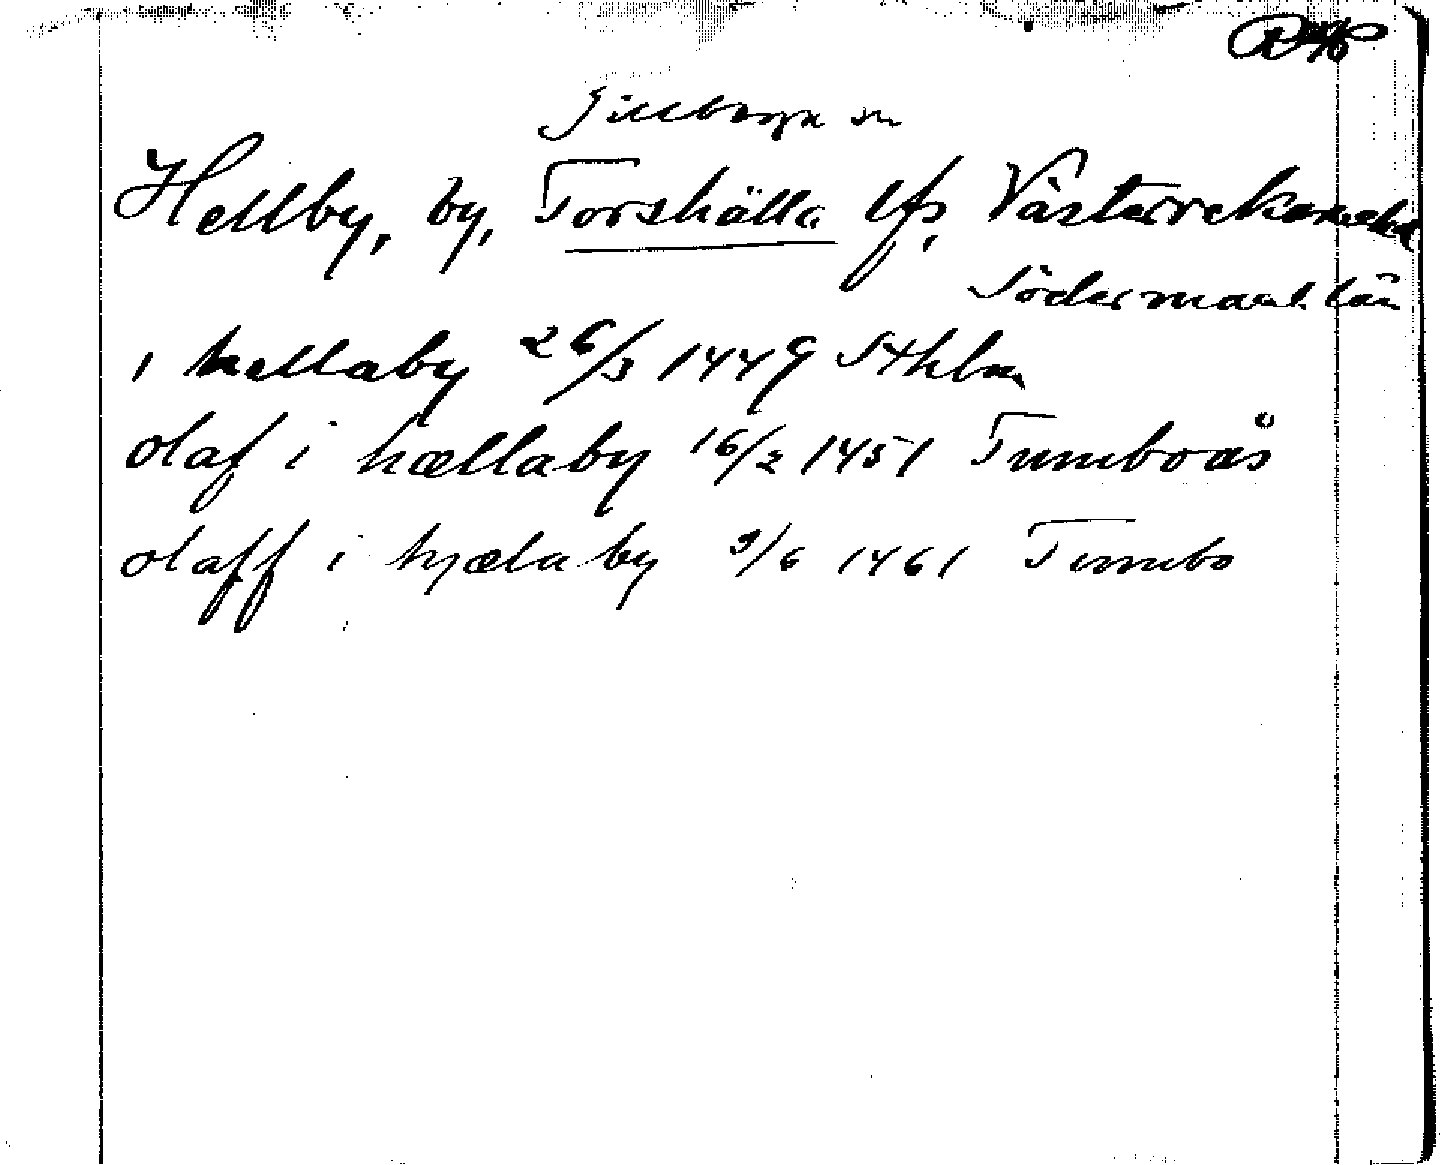 Gillberga sn
Hellby, by, Torshälla lfs, Västerrekarnehd
Södermanl. län
i hellaby 26/3 1449 Sthlm
olaf i hællaby 16/2 1451 Tumboås
olaff i hjæla by 9/6 1461 Tumbo